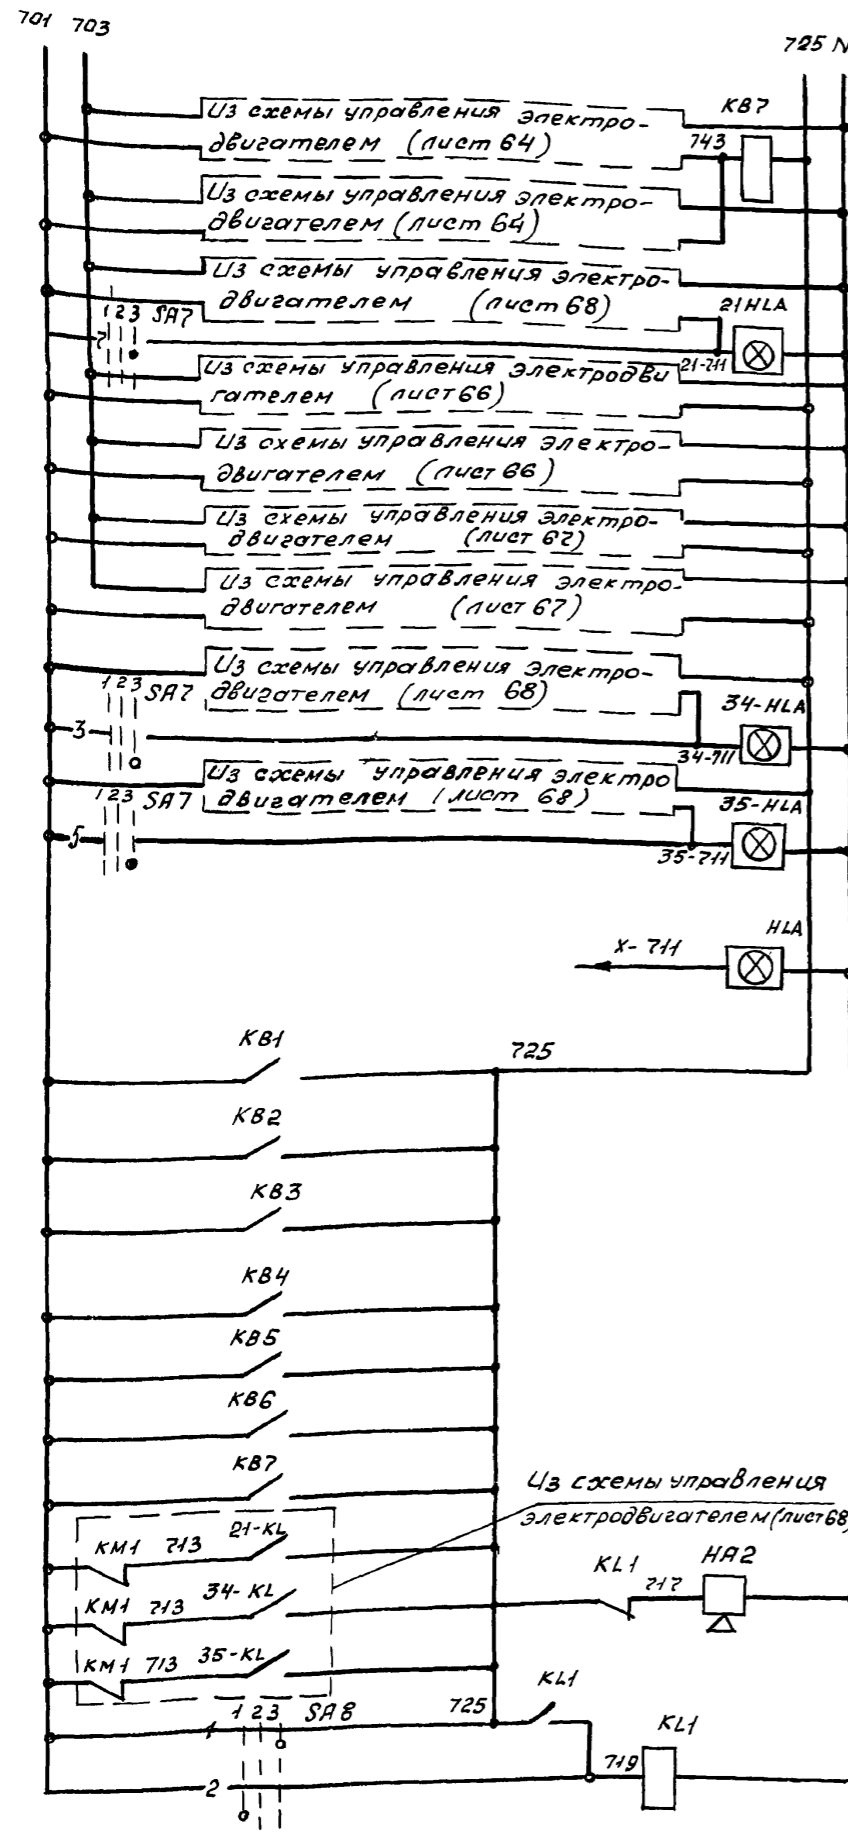 701 703
725 N
Из схемы управления электро-
двигателем (лист 64)
743
КВ7
Из схемы управления электро-
двигателем (лист 64)
Из схемы управления электро-
двигателем (лист 68)
21HLA
1 2 3 SA7
7
21-711
Из схемы управления электродви
гателем (лист 66)
Из схемы управления электро-
двигателем (лист 66)
Из схемы управления электро-
двигателем (лист 67)
Из схемы управления электро-
двигателем (лист 67)
Из схемы управления электро-
двигателем (лист 68)
1 2 3 SA7
34-HLA
3
34-711
Из схемы управления электро
двигателем (лист 68)
1 2 3 SA7
35-HLA
5
35-711
HLA
X-711
КВ1
725
КВ2
КВ3
КВ4
КВ5
КВ6
КВ7
Из схемы управления
электродвигателем (лист 68)
КМ1 713 21-KL
КМ1 713 34-KL
KL1 717 НА2
КМ1 713 35-KL
1 2 3 SA8
725
KL1
1
KL1
2
719